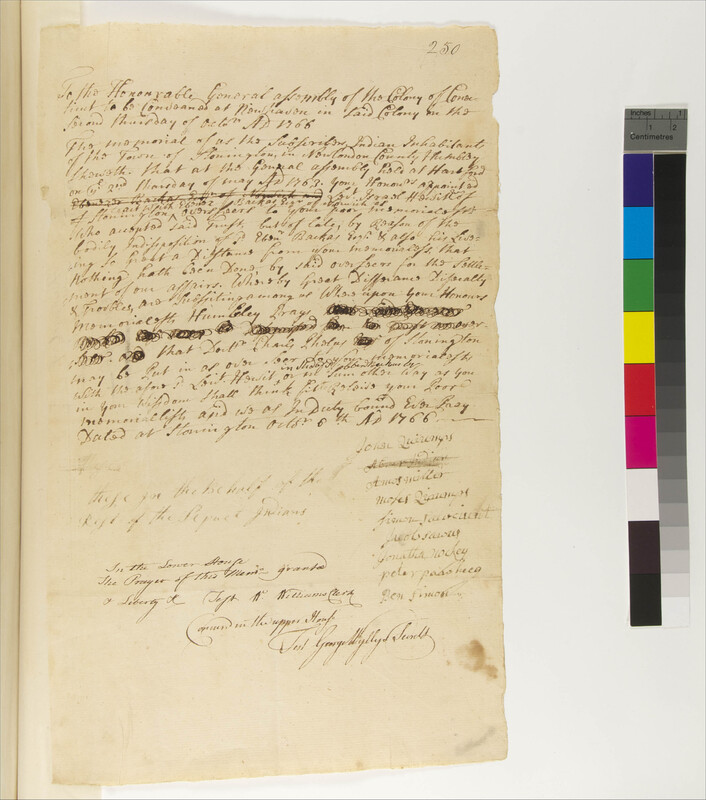 250
To the Honourable General assembly of the Colony of Conec-
ticut to be Convened at Newhaven in Said Colony on the
Second thursday of Octr AD 1766
The memorial of us the Subscribers Indian Inhabitants
of the Town of Stonington, in New London County Humbley
Sheweth that at the General assembly held at Hartford
on ye 2nd thursday of may AD 1763. your Honours appointed
Ebenezer Backus Esqr of Norwich and Israel Hewit
of Stonington overseers to your poor memorialists
Who accepted said trust, but of Late, by Reason of the
bodily Indisposition of sd Eben Backus Esqr & also his Live-
ing So Great a Distance from your memorialists that
Nothing hath been Done by said overseers in the Settle-
ment of our affairs. Whereby Great Differance Difecalty
& Trobles, are Subsisting among us Whereupon your Honours
Memorialists Humbley Prays
that Doctr Charls Phelps of Stonington
may be Put in as over seer to your memorialists
With the afore sd Leut Hewit, or in Sum other way as you
in your Wisdom Shall think fitt Releive your Poor
Memorialists and we as In Duty bound Ever Pray
Dated at Stonington Octr 6th AD 1766
these in the behalf of the
Rest of the Pequot Indians
Amos miller
Moses Quiumps
Simon
Jacob sawus
peter
Ben Simon
In the Lower House
The Prayer of this Memo granted
& Liberty &c Test Wm Williams Clerk
Concurd in the upper House
Test George Wyllys Secrety